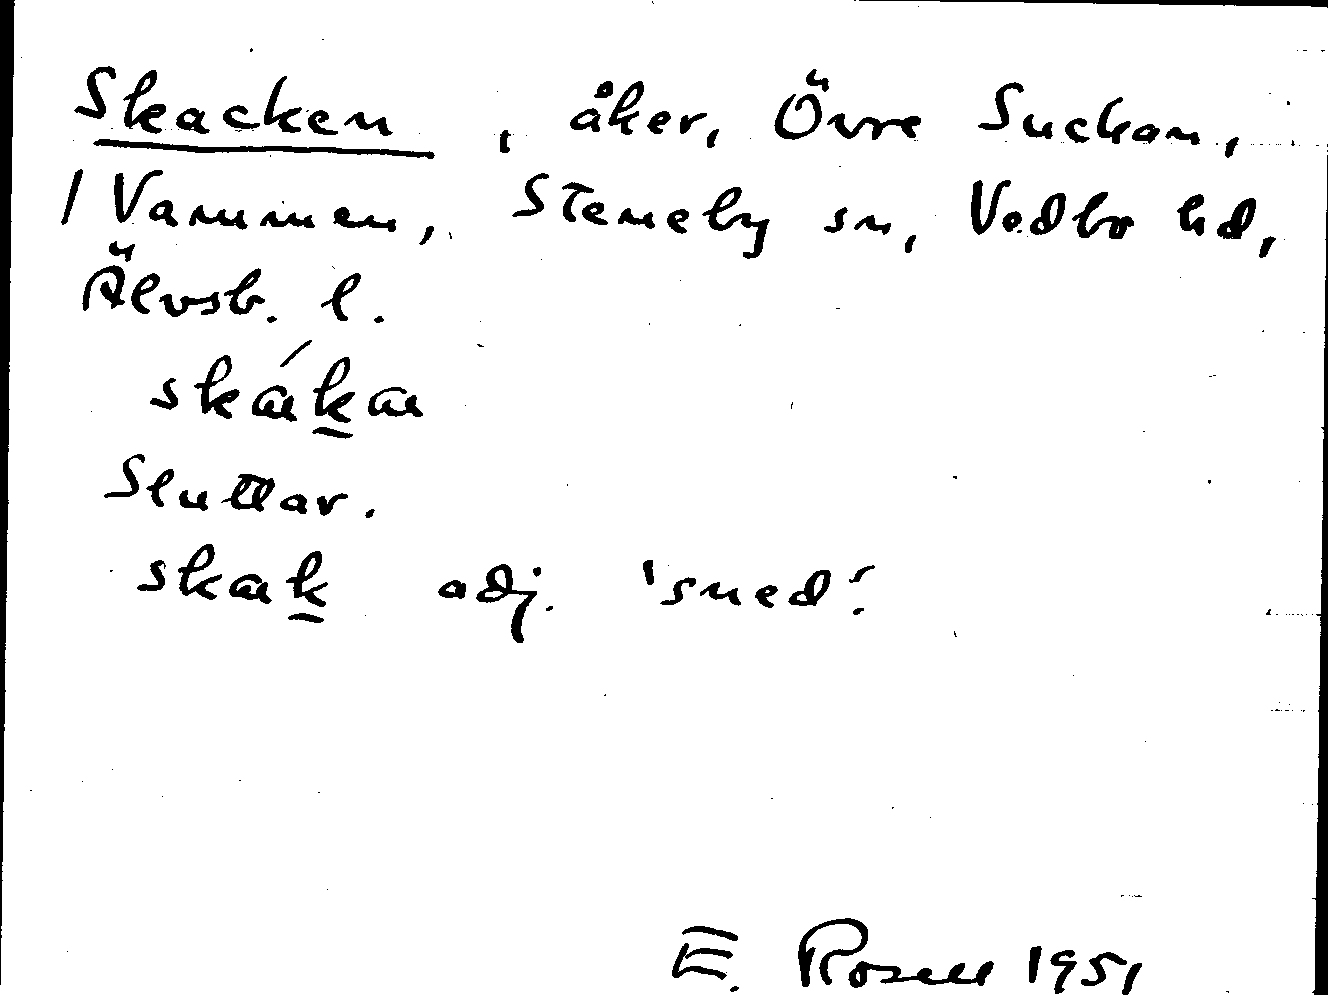 Skacken, åker, Övre Suckan,
/ Vammen, Steneby sn, Vedbo hd,
Älvsb. l.
skákan
Sluttar.
skak adj. 'sned'.
E. Rosell 1951